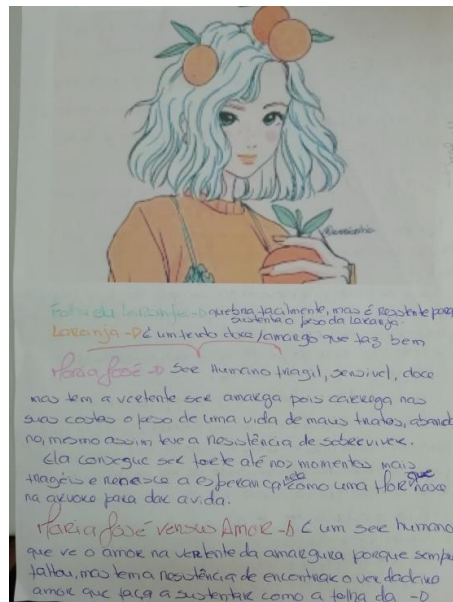 Folha da Laranja → quebra facilmente, mas é Resistente para
sustentar o peso da Laranja.
Laranja → é um fruto doce/amargo que faz bem
Maria José → Ser Humano fragil, sensivel, doce
mas tem a vertente ser amarga pois carrega nas
suas costas o peso de uma vida de maus tratos, abando
no, mesmo assim teve a resistência de sobreviver.
Ela consegue ser forte até nos momentos mais
frageis e renasce a esperança nela como uma flor que nasce
na arvore para dar a vida.
Maria José versus Amor → é um ser humano
que ve o amor na vertente da amargura porque sempre
faltou, mas tem a resistência de encontrar o verdadeiro
amor que faça a sustentar como a folha da →